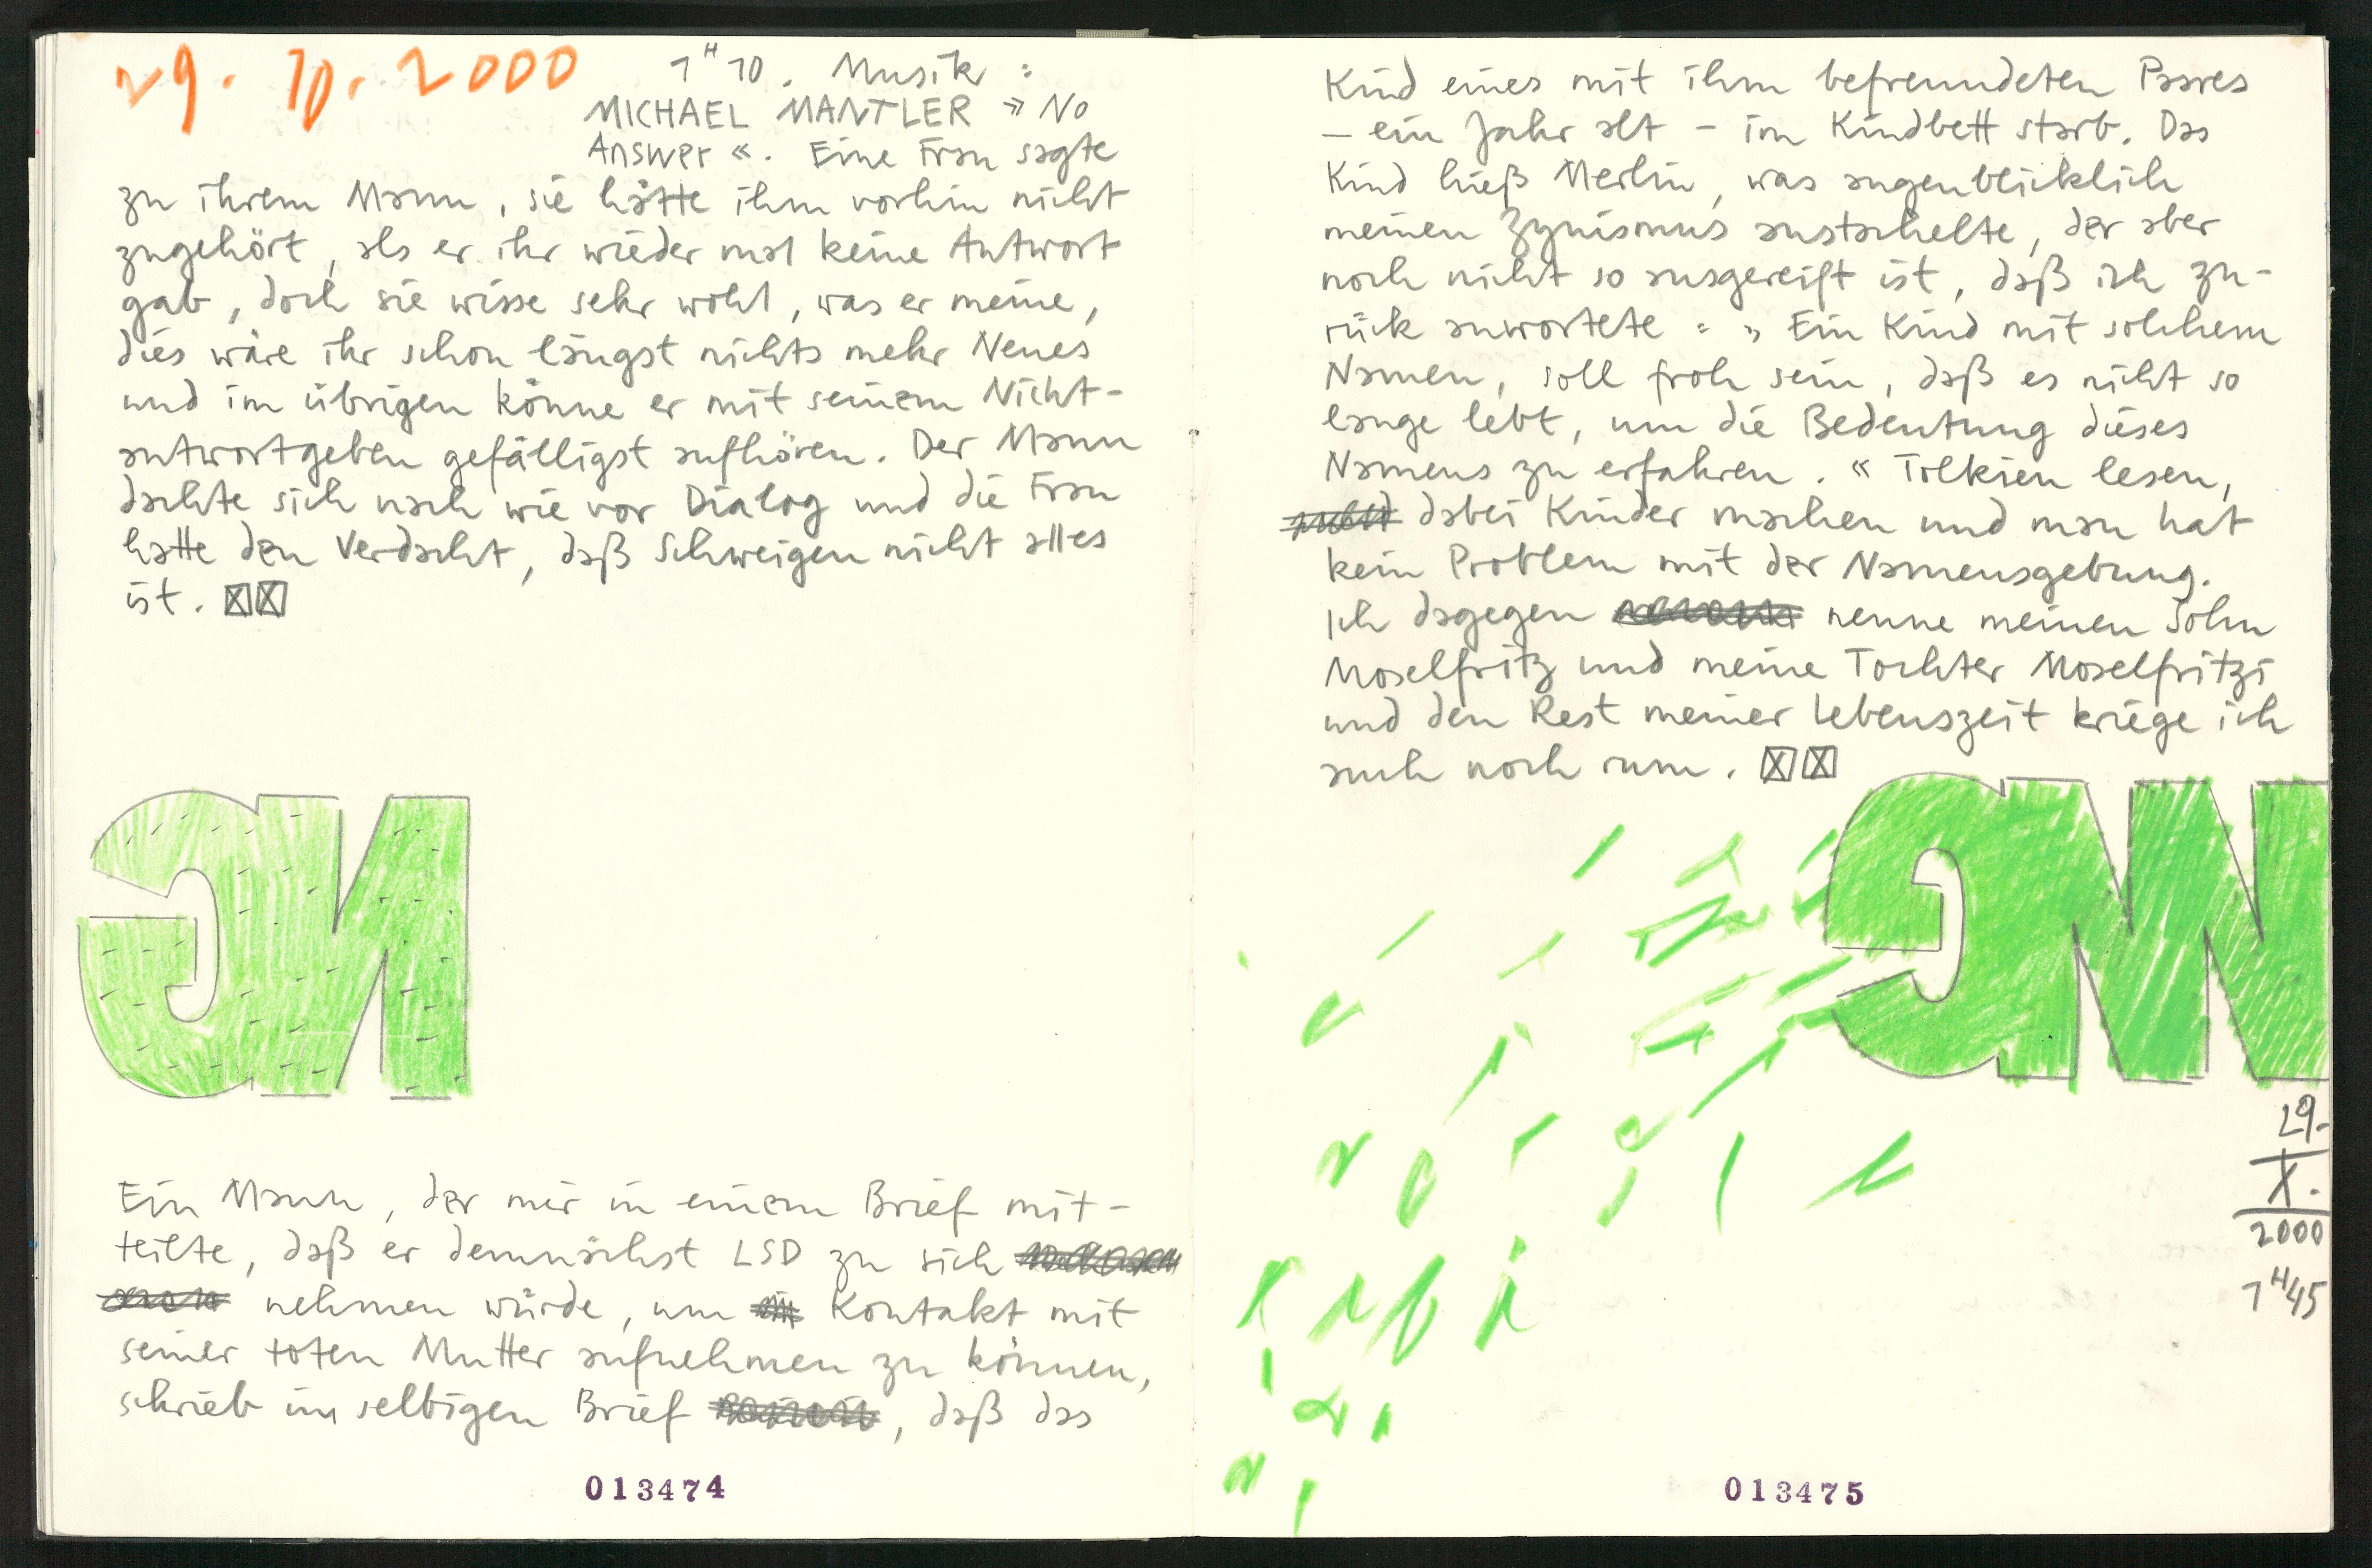 29. 10. 2000
1ᴴ10. Musik :
MICHAEL MANTLER » No
Answer «. Eine Frau sagte
zu ihrem Mann, sie hätte ihm vorhin nicht
zugehört, als er ihr wieder mal keine Antwort
gab, doch sie wisse sehr wohl, was er meine,
dies wäre ihr schon längst nichts mehr Neues
und im übrigen könne er mit seinem Nicht-
antwortgeben gefälligst aufhören. Der Mann
dachte sich nach wie vor Dialog und die Frau
hatte den Verdacht, daß Schweigen nicht alles
ist. ☒☒
GN
Ein Mann, der mir in einem Brief mit-
teilte, daß er demnächst LSD zu sich
nehmen würde, um Kontakt mit
seiner toten Mutter aufnehmen zu können,
schrieb im selbigen Brief , daß das
013474
Kind eines mit ihm befreundeten Paares
– ein Jahr alt – im Kindbett starb. Das
Kind hieß Merlin, was augenblicklich
meinen Zynismus anstachelte, der aber
noch nicht so ausgereift ist, daß ich zu-
rück anwortete : „ Ein Kind mit solchem
Namen, soll froh sein, daß es nicht so
lange lebt, um die Bedeutung dieses
Namens zu erfahren. “ Tolkien lesen,
dabei Kinder machen und man hat
kein Problem mit der Namensgebung.
Ich dagegen nenne meinen Sohn
Moselfritz und meine Tochter Moselfritzi
und den Rest meiner Lebenszeit kriege ich
auch noch rum. ☒☒
29.
X.
2000
1ᴴ45
013475